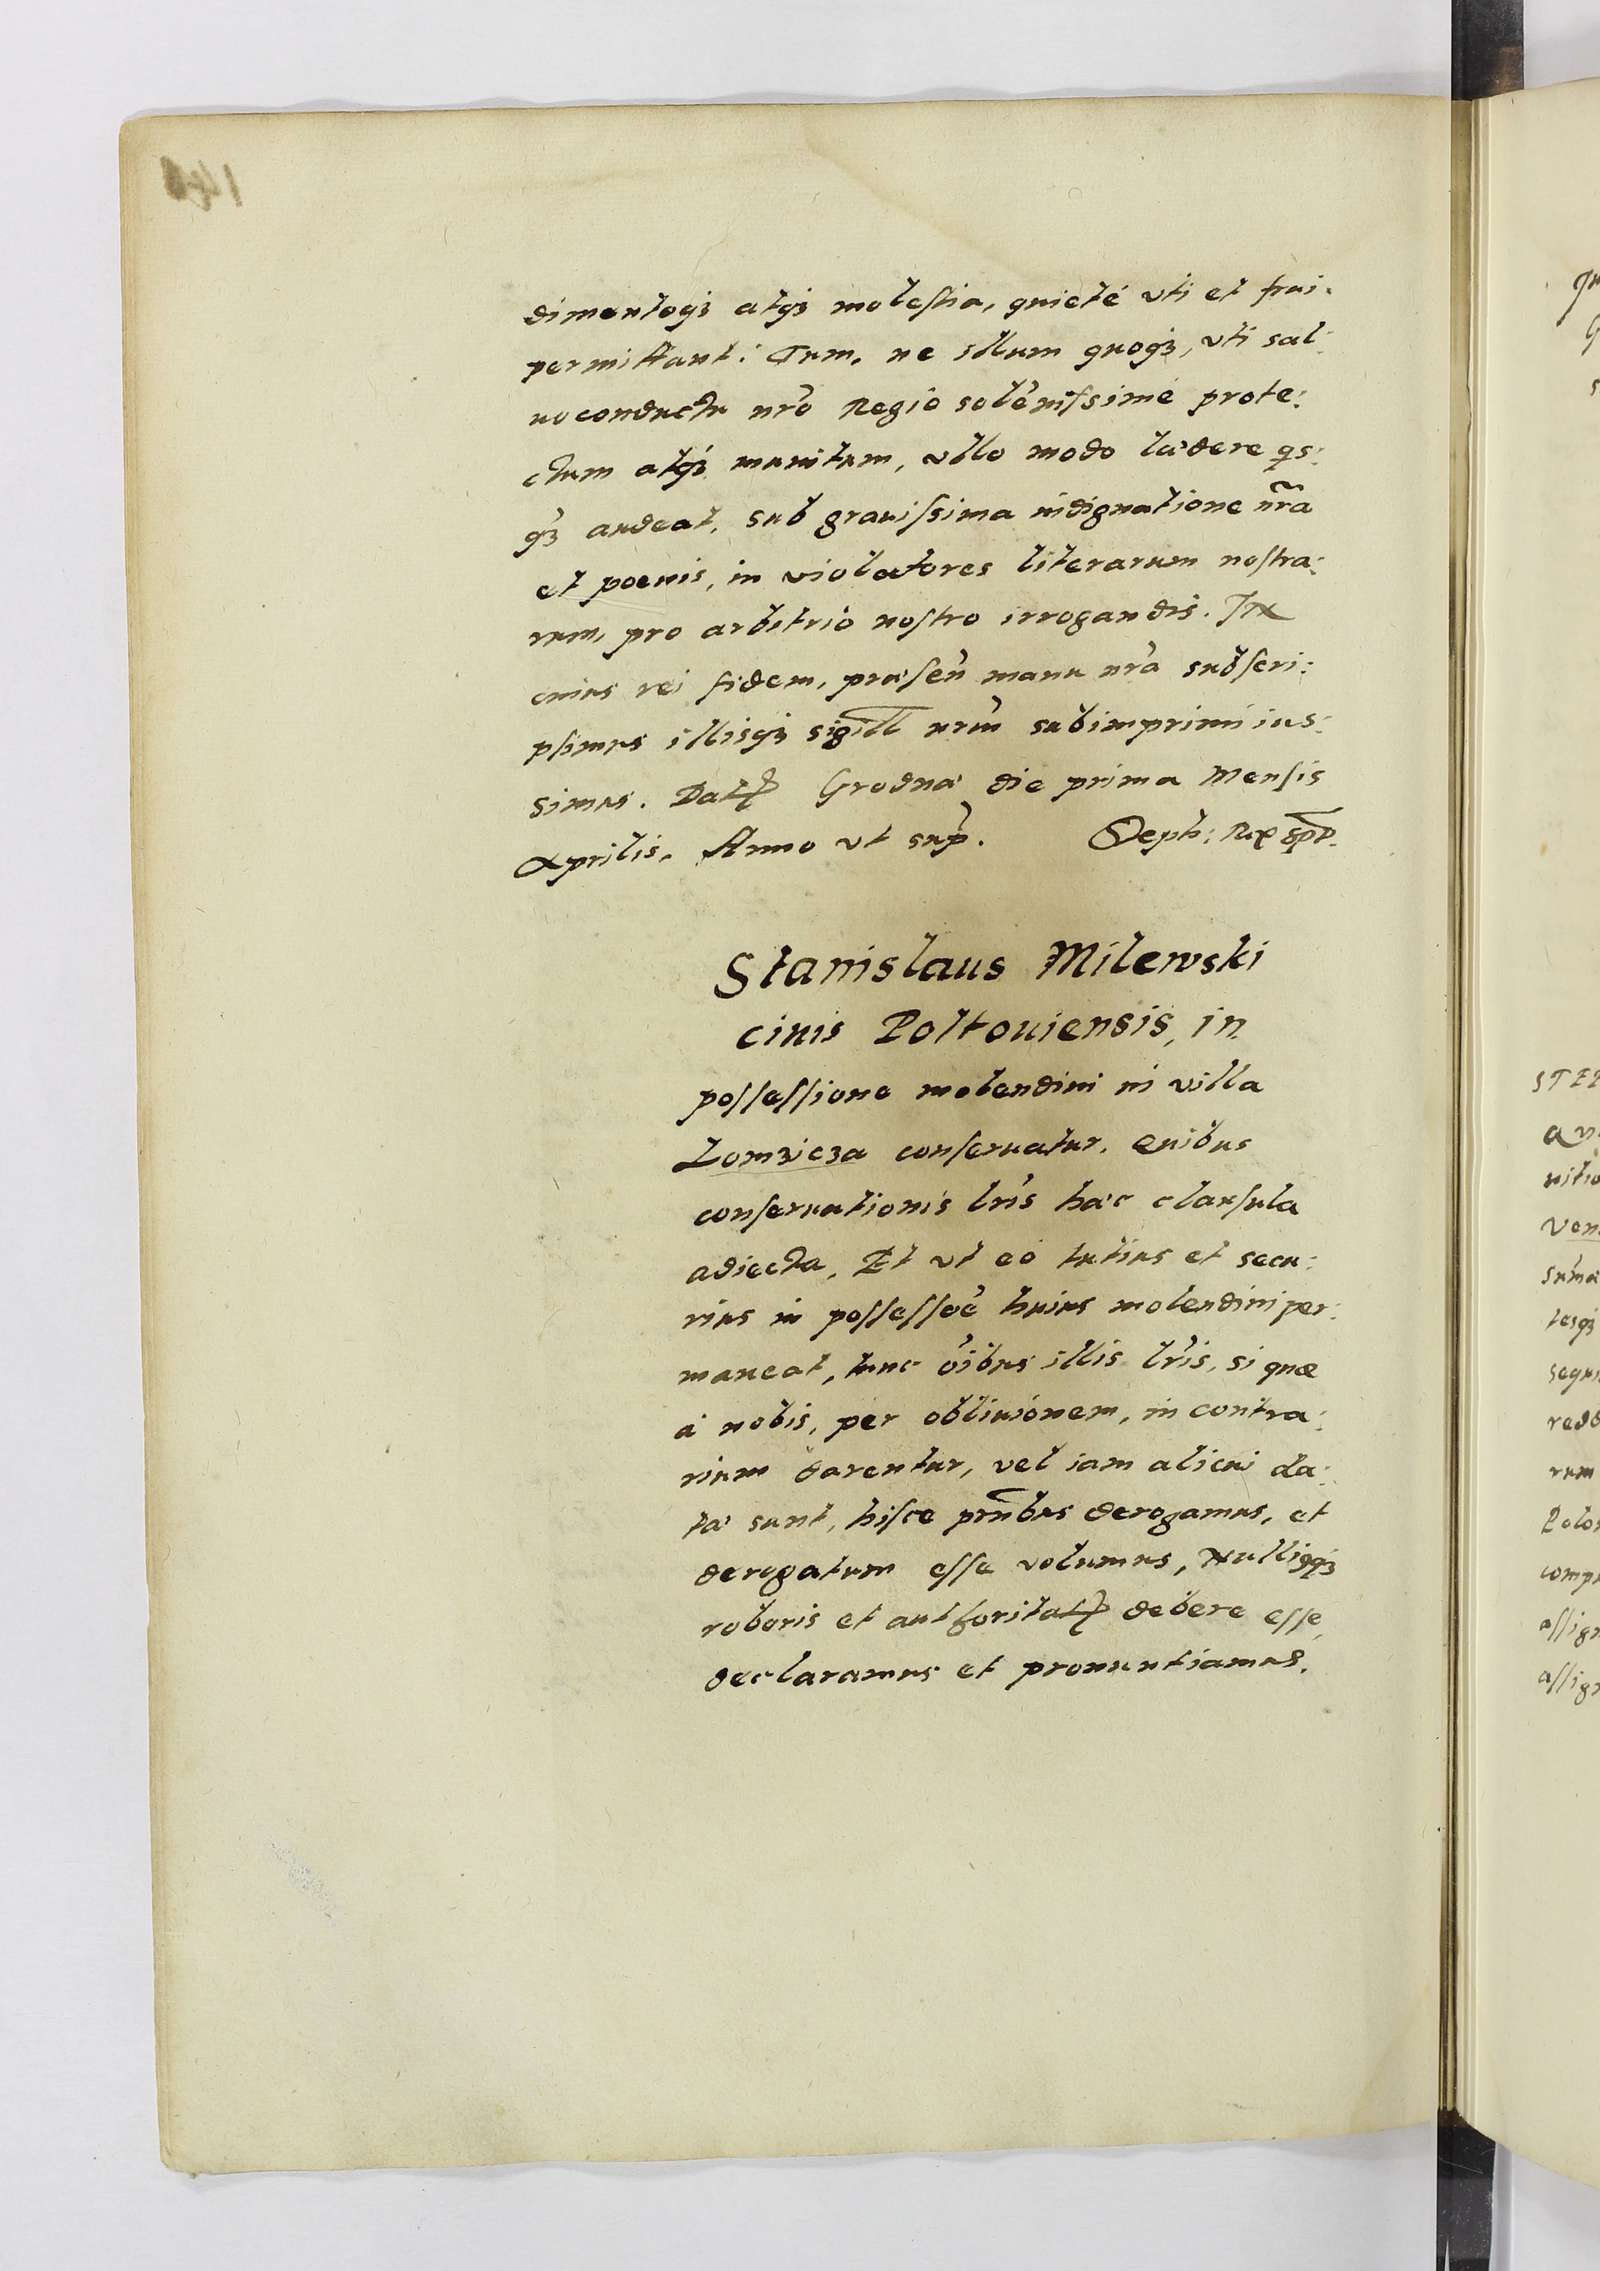 dimentoqȝ atqȝ molestia, quieté vti et frui.
permittant: Tum, ne illum quoqȝ, vti sal:
uoconductu nr̃o Regio solẽnissimé prote:
ctum atqȝ munitum, vllo modo lædere qs:
qȝ audeat, sub grauissima indignatione nr̃a
et poenis, in violatores literarum nostra:
rum, pro arbitrio nostro irrogandis. In
cuius rei fidem, præsen̄ manu nr̃a subscri:
psimus illisqȝ sigill nrm̃ subimprimi ius:
simus. Datȩ Grodnæ die prima Mensis
Aprilis. Anno vt sup̃.
Steph: Rex sp̃t.
Stanislaus Milewski
ciuis Poltouiensis, in
possessione molendini in villa
Lomzicza conseruatur. Quibus
conseruationis lr̃is hæc clausula
adiecta, Et vt eó tutius et secu:
rius in possessoẽ huius molendini per:
maneat, tunc oĩbus illis lr̃is, si quæ
á nobis, per obliuionem, in contra:
rium darentur, vel iam alicui da:
tæ sunt, hisce pñtibus derogamus, et
derogatum esse volumus, Nulliqȝ
roboris et authoritatȩ debere esse,
declaramus et pronuntiamus.